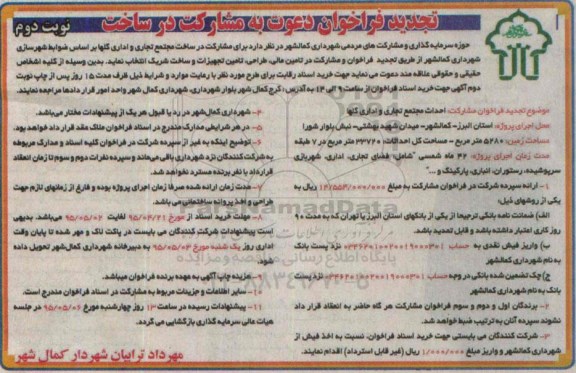 تجدید فراخوان دعوت به مشارکت در ساخت
نوبت دوم
حوزه سرمایه گذاری و مشارکت های مردمی شهرداری کمالشهر در نظر دارد برای مشارکت در ساخت مجتمع تجاری و اداری گلها بر اساس ضوابط شهرسازی
شهرداری کمالشهر از طریق تجدید فراخوان و مشارکت در تامین مالی، طراحی، تامین تجهیزات و ساخت شریک انتخاب نماید. بدین وسیله از کلیه اشخاص
حقیقی و حقوقی علاقه مند دعوت می نماید جهت خرید اسناد رقابت برای طرح مورد نظر با رعایت موارد و شرایط ذیل ظرف مدت ۱۵ روز پس از چاپ نوبت
دوم آگهی جهت خرید اسناد فراخوان از ساعت ۹ الی ۱۴ به آدرس: کرج کمال شهر بلوار شهرداری، شهرداری کمال شهر واحد امور قرار دادها مراجعه نمایند.
موضوع تجدید فراخوان مشارکت: احداث مجتمع تجاری و اداری گلها
محل اجرای پروژه: استان البرز- کمالشهر- میدان شهید بهشتی- نبش بلوار شورا
مساحت زمین: ۵۲۸۰ متر مربع - مساحت کل احداثات: ۳۳۷۲۰ متر مربع در ۷ طبقه
مدت زمان اجرای پروژه: ۴۲ ماه شمسی "شامل: فضای تجاری، اداری، شهربازی
سرپوشیده، رستوران، انباری، پارکینگ و ..."
۱- ارائه سپرده شرکت در فراخوان مشارکت به مبلغ ریال به
یکی از روشهای ذیل:
الف) ضمانت نامه بانکی ترجیحا از یکی از بانکهای استان البرز یا تهران که به مدت ۹۰
روز کاری اعتبار داشته باشد و قابل تمدید باشد.
ب) واریز فیش نقدی به حساب نزد پست بانک
به نام شهرداری کمالشهر
ج) چک تضمین شده بانکی در وجه حساب نزد پست
بانک به نام شهرداری کمالشهر
۲- برندگان اول و دوم و سوم فراخوان مشارکت هر گاه حاضر به انعقاد قرار داد
نشوند سپرده آنان به ترتیب ضبط خواهد شد.
۳- شرکت کنندگان می بایستی جهت خرید اسناد فراخوان، نسبت به اخذ فیش از
شهرداری کمالشهر و واریز مبلغ ۱/۰۰۰/۰۰۰ ریال (غیر قابل استرداد) اقدام نمایند.
۴- شهرداری کمال شهر در رد یا قبول هر یک از پیشنهادات مختار می‌باشد.
۵- در هر شرایطی مدارک مندرج در اسناد فراخوان ملاک عقد قرار داد خواهد بود.
۶- توضیح اینکه به غیر از سپرده شرکت در فراخوان کلیه اسناد و مدارک مربوطه
به شرکت کنندگان نزد شهرداری باقی می‌ماند و سپرده نفرات دوم و سوم تا زمان انعقاد
قرارداد با نفر برنده مسترد نخواهد شد.
۷- مدت زمان ارائه شده صرفا زمان اجرای پروژه بوده و فارغ از زمانهای لازم جهت
طراحی و اخذ پروانه ساختمانی می باشد.
۸- مهلت خرید اسناد از مورخ ۹۵/۰۴/۲۱ لغایت ۹۵/۰۵/۰۲ می‌باشد. بدیهی
است پیشنهادات شرکت کنندگان می بایست در پاکت لاک و مهر شده تا پایان وقت
اداری روز یک شنبه مورخ ۹۵/۰۵/۰۳ به دبیرخانه شهرداری کمال‌شهر تحویل داده
شود.
۹- هزینه چاپ آگهی به عهده برنده فراخوان میباشد.
۱۰- سایر اطلاعات و جزییات مربوط به مشارکت در اسناد فراخوان مندرج است.
۱۱- پیشنهادات رسیده در ساعت ۱۳ روز چهارشنبه مورخ ۹۵/۰۵/۰۶ در جلسه
هیات عالی سرمایه گذاری بازگشایی می گردد.
مهرداد ترابیان شهردار کمال شهر